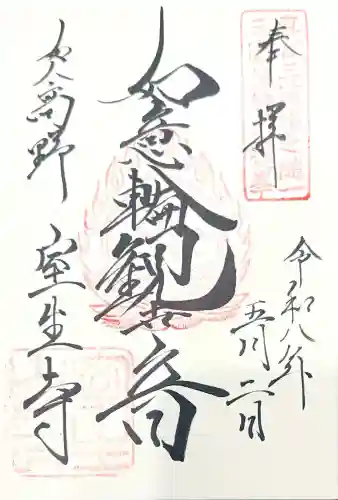 奉拝
令和八年
五月二日
如意輪観世音
女人高野
室生寺